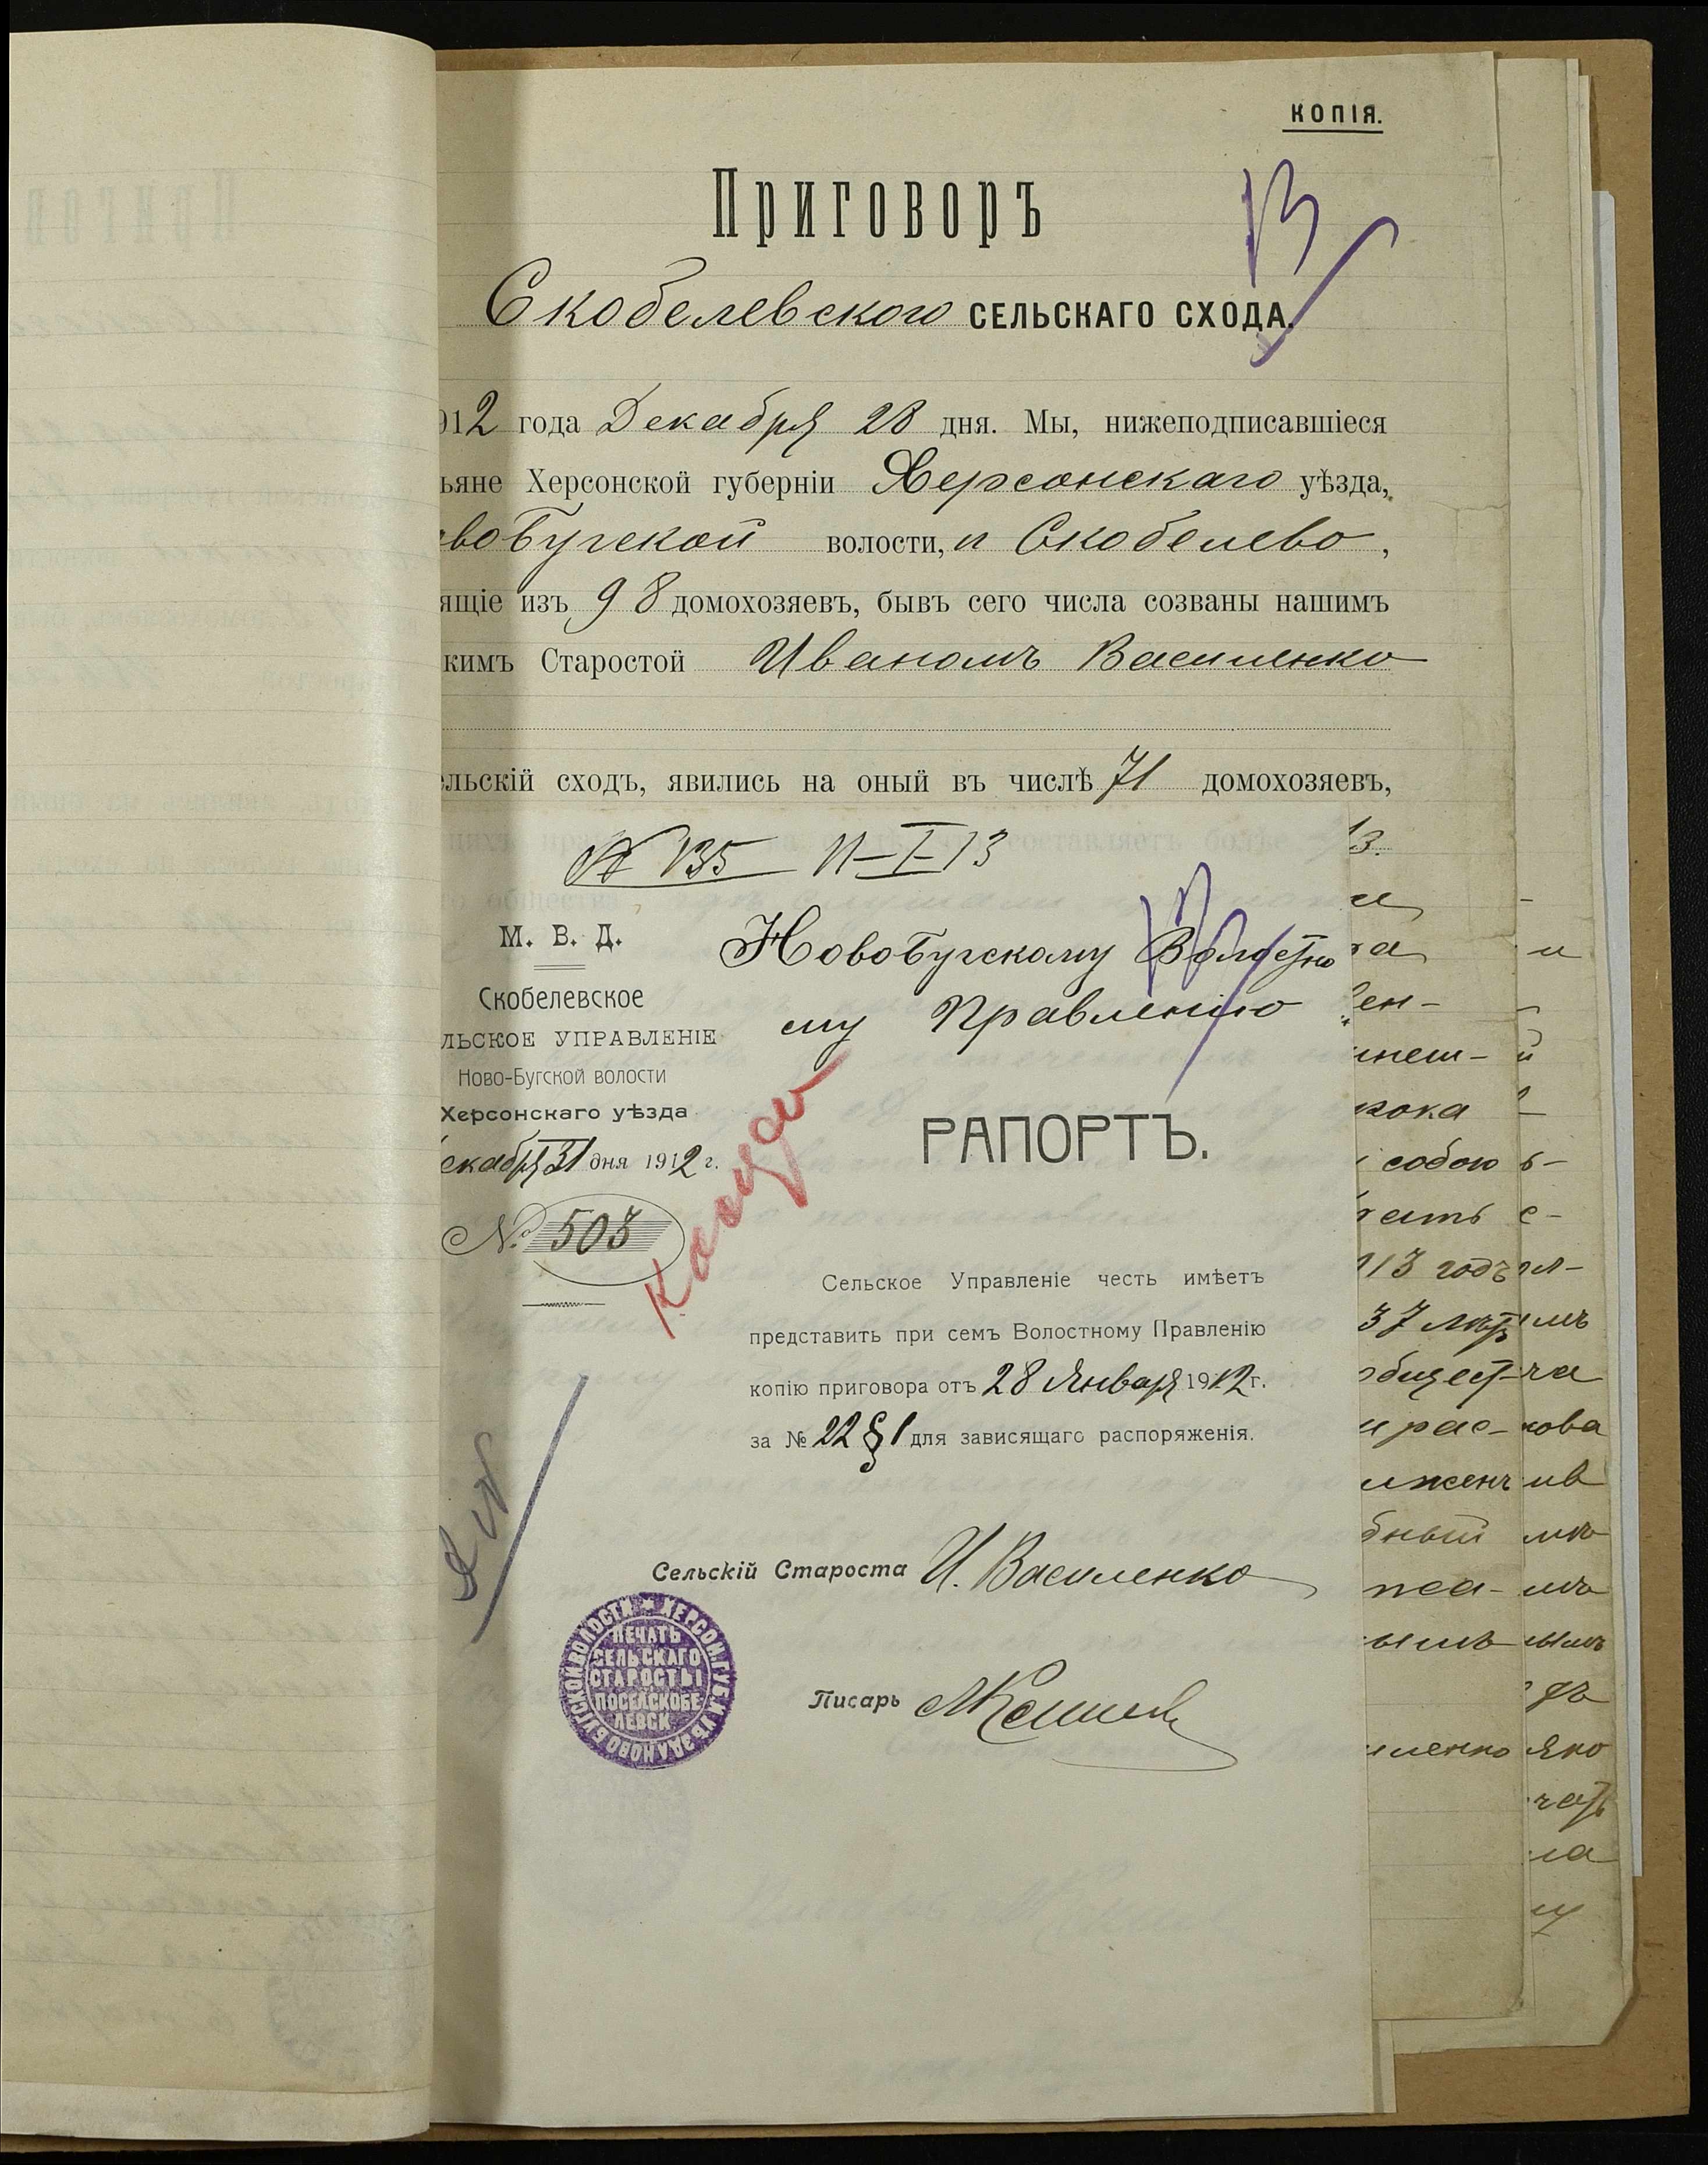 КОПІЯ.
Приговоръ
Скобелевского СЕЛЬСКАГО СХОДА.
912 года Декабря 28 дня. Мы, нижеподписавшіеся
ьяне Херсонской губерніи Херсонскаго уѣзда,
вобугской волости, п Скобелево,
ящіе изъ 98 домохозяевъ, бывъ сего числа созваны нашимъ
кимъ Старостой Иваномъ Василенко
ельскій сходъ, явились на оный въ числѣ 71 домохозяевъ,
№ 135 11-I-13
М. В. Д.
Скобелевское
ЛЬСКОЕ УПРАВЛЕНІЕ
Ново-Бугской волости
Херсонскаго уѣзда
екабря 31 дня 1912 г.
№ 503
Новобугскому Волостно
му Правленію
РАПОРТЪ.
Сельское Управленіе честь имѣетъ
представить при семъ Волостному Правленію
копію приговора отъ 28 Января 1912 г.
за № 22 § 1 для зависящаго распоряженія.
Сельскій Староста И. Василенко
Писарь
ПЕЧАТЬ
СЕЛЬСКАГО
СТАРОСТЫ
ПОСЕЛ.СКОБЕ
ЛЕВСК
ХЕРСОН.ГУБ. И УѢЗДА НОВО БУГСКОЙ ВОЛОСТИ
13.
ен-
инеш-
рока
собою
13 годъ
37 лѣтъ
общест-
и рас-
бный
иленко